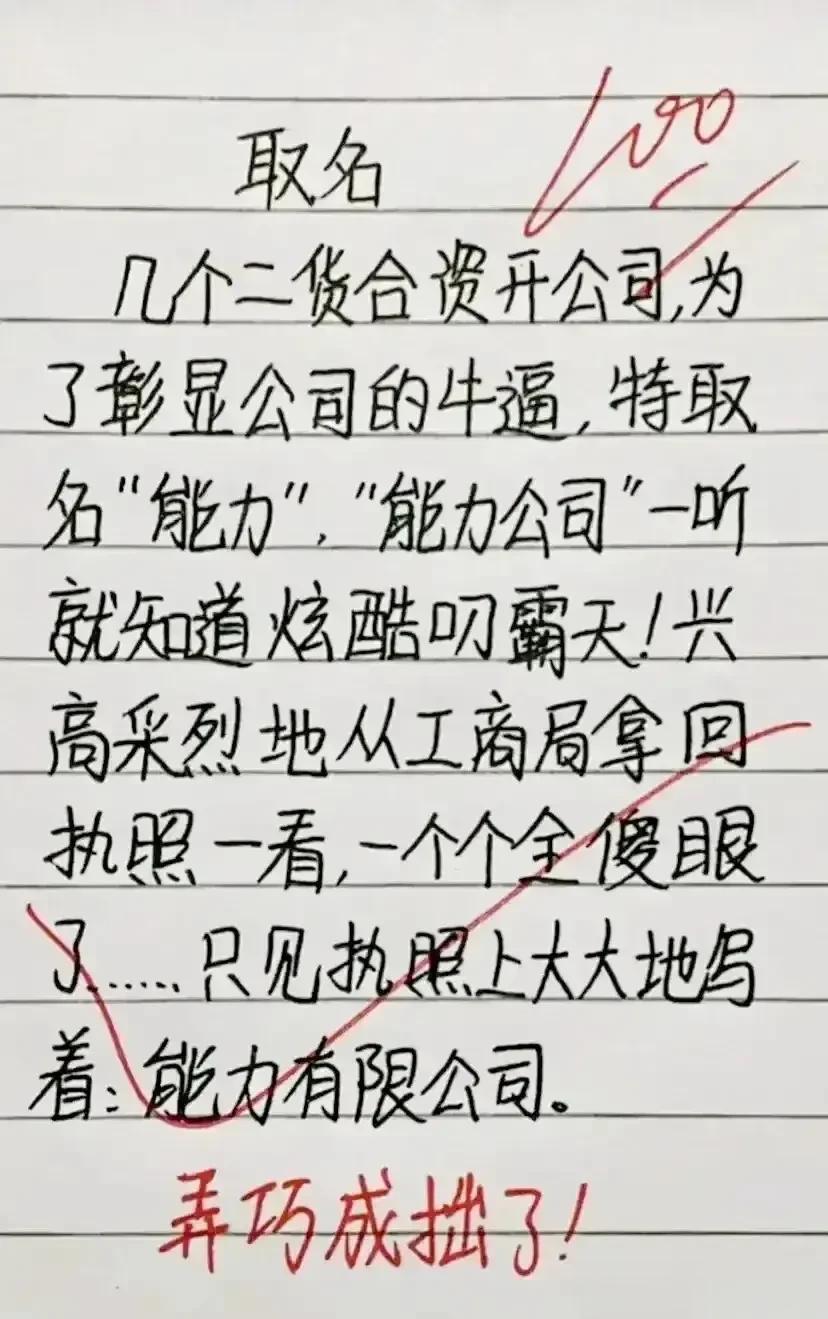 取名
100
几个二货合资开公司,为
了彰显公司的牛逼,特取
名“能力”,“能力公司”一听
就知道炫酷叼霸天!兴
高采烈地从工商局拿回
执照一看,一个个全傻眼
了……只见执照上大大地写
着:能力有限公司。
弄巧成拙了!